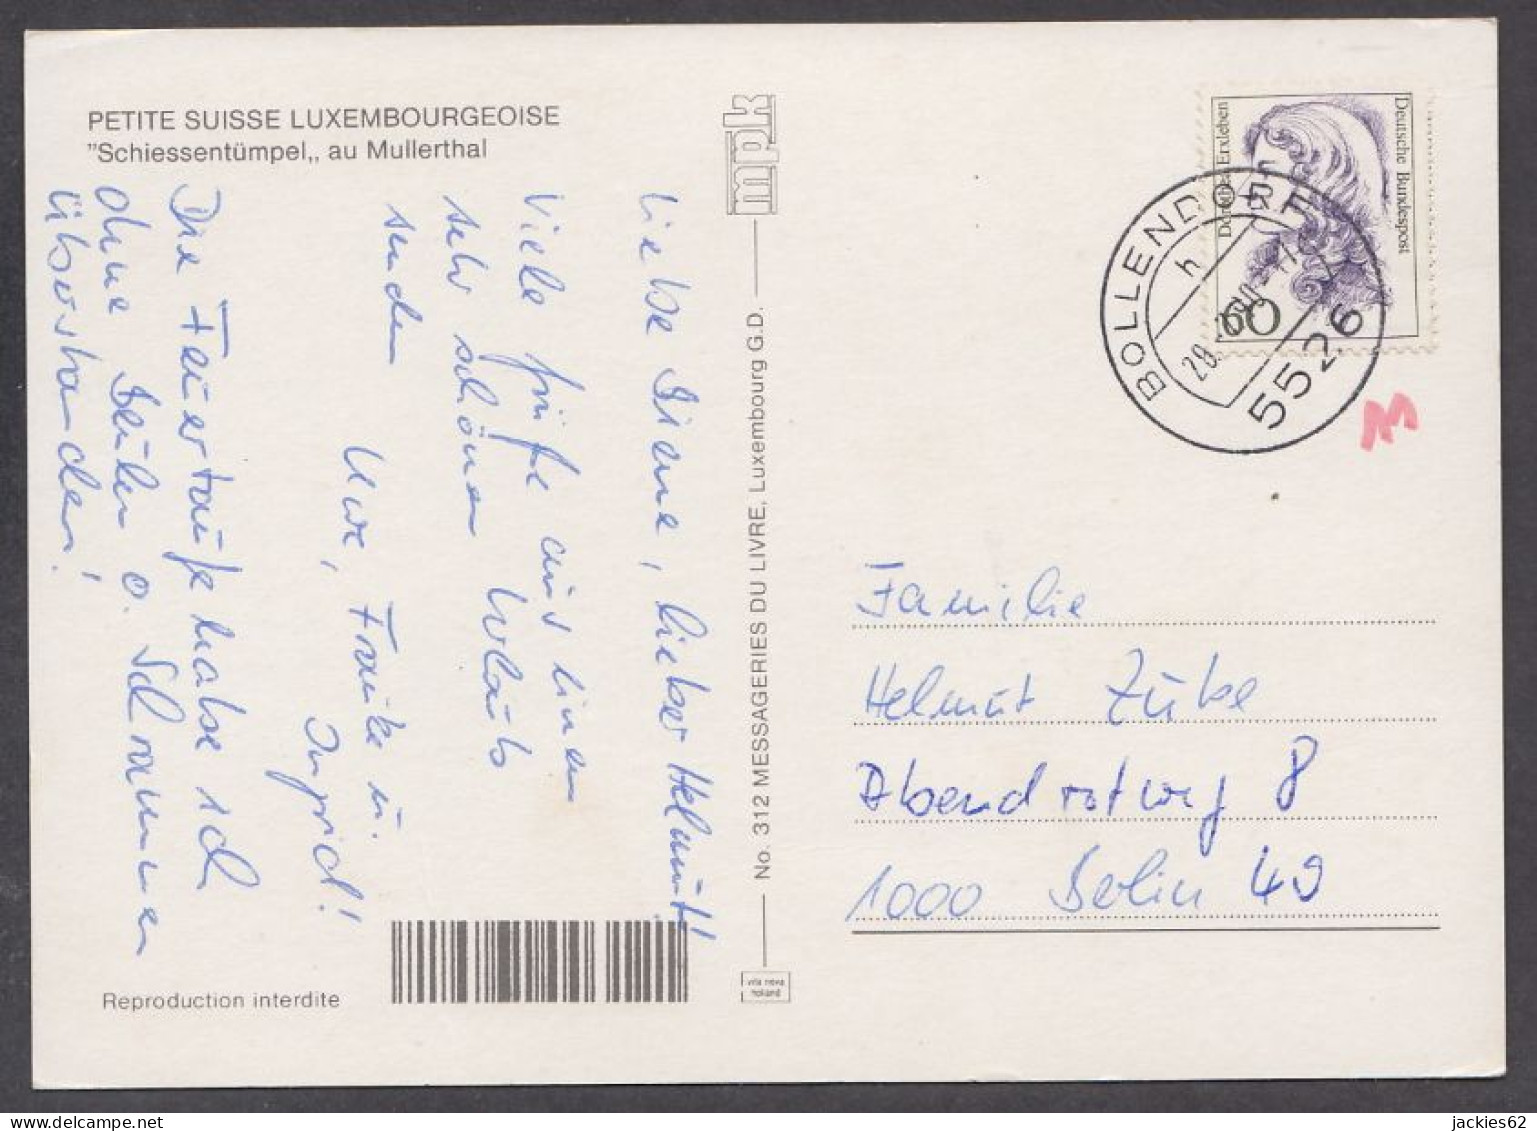 PETITE SUISSE LUXEMBOURGEOISE
"Schiessentümpel„ au Mullerthal
Liebe Biene, lieber Helmut!
Viele Grüße aus einem
sehr schönen Urlaub
senden
Uwe, Frauke u.
Ingrid!
Die Feuertaufe habe ich
ohne Beulen o. Schrammen
überstanden!
Reproduction interdite
mpk
No. 312 MESSAGERIES DU LIVRE, Luxembourg G.D.
vila nova
holland
Deutsche Bundespost
Dorothea Erxleben
60
BOLLENDORF
5526
h
Familie
Helmut Zübe
Abendrotweg 8
1000 Berlin 49
jackies62